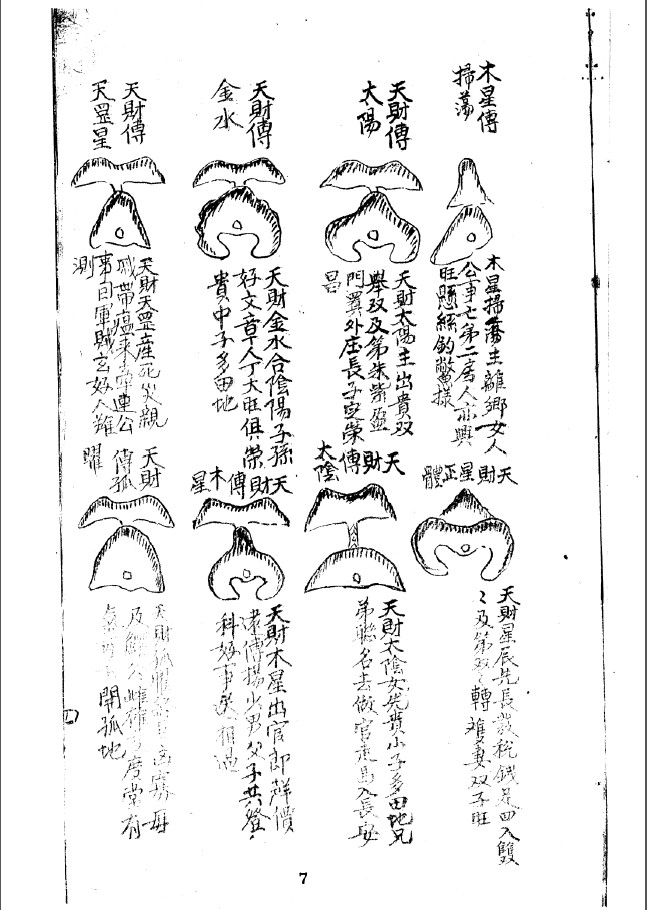 木星傳
掃蕩
木星掃蕩主離鄉女人
公事七第二房人亦興
旺懸絲釣鱉樣
天財傳
太陽
天財太陽主出貴双
舉双及第朱紫盈
門翼外庄長子定榮
昌
天財傳
金水
天財金水合陰陽子孫
好文章人丁大旺俱榮
貴中子多田地
天財傳
天罡星
天財天罡主產死災親
戚帶瘟来牽連公
事因軍賊玄好人難
測
天財星正體
天財星辰先長裁稅錢足四入雙
〻及第双〻轉难妻双子旺
天財傳
太陰
天財太陰女先貴小子多田地兄
弟聯名去做官走馬入長安
天財傳木星
天財木星出官郎群價
傳揚少男父子共登
科好事
天財
傳孤
曜
天財孤
及
開孤地
四
7